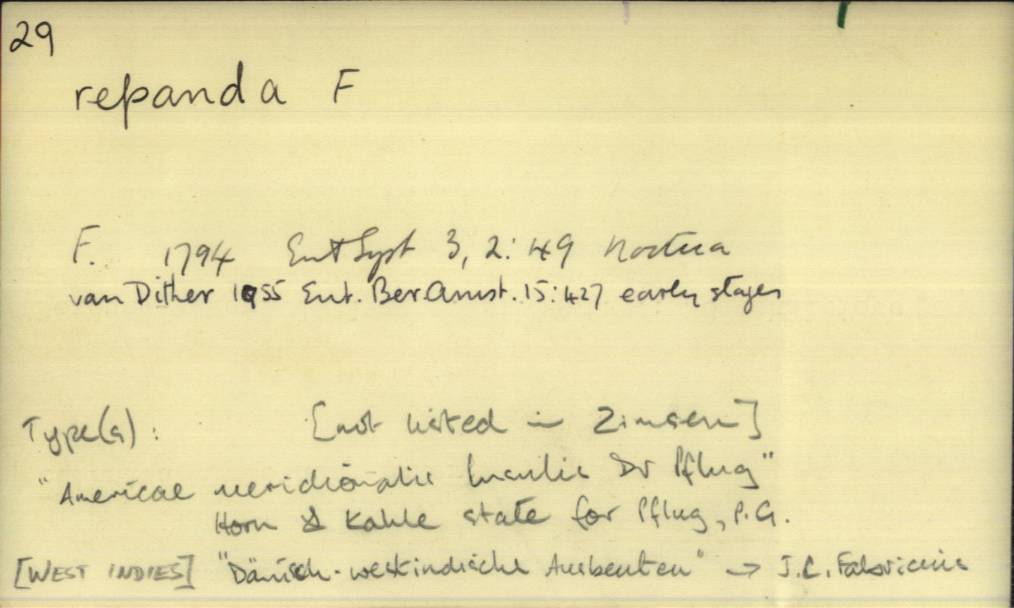 29
repanda F
F. 1794 Ent Syst 3, 2: 49 Noctua
van Dither 1955 Ent. Ber. Amst. 15: 427 early stages
Type(s): [not listed in Zimsen]
"Americae meridionalis Insulis Dr Pflug"
Horn & Kahle state for Pflug, P.G.
[WEST INDIES] "Dänisch-westindische Ausbeuten" → J.C. Fabricius